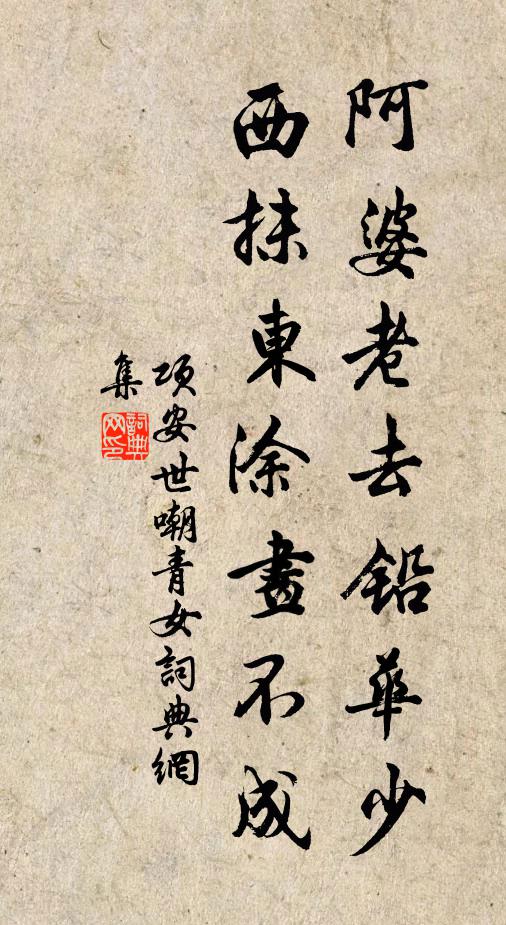 阿婆老去鉛華少
西抹東涂畫不成
項安世嘲青女詞典網
集
詞典網印